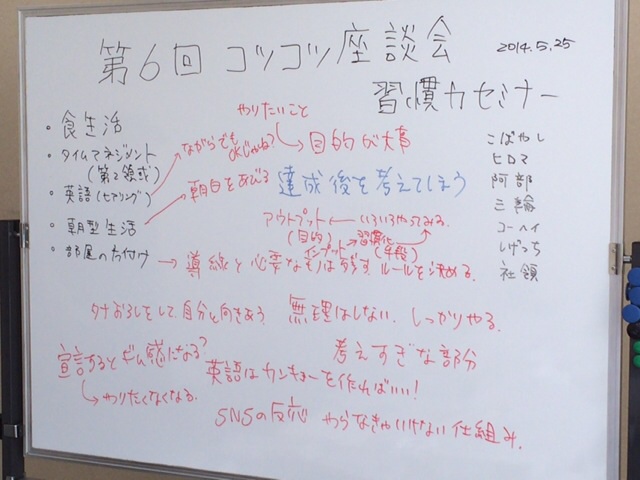 第6回 コツコツ座談会
2014.5.25
習慣力セミナー
・食生活
・タイムマネジメント
(第2領域)
・英語(ヒアリング)
・朝型生活
・部屋の片付け
やりたいこと
ながらでも
OKじゃね?
目的が大事
朝日をあびる
達成後を考えてしまう
アウトプット ← いろいろやってみる。
(目的)
インプット → 習慣化
(手段)
→ 導線と必要なものは残す ルールを決める。
タナおろしをして、自分と向きあう
無理はしない、しっかりやる。
宣言するとギム感になる?
→ やりたくなくなる。
考えすぎな部分
英語はカンキョーを作ればいい!
SNSの反応
やらなきゃいけない仕組み。
こばやし
ヒロマ
阿部
三輪
コーヘイ
しげっち
社領